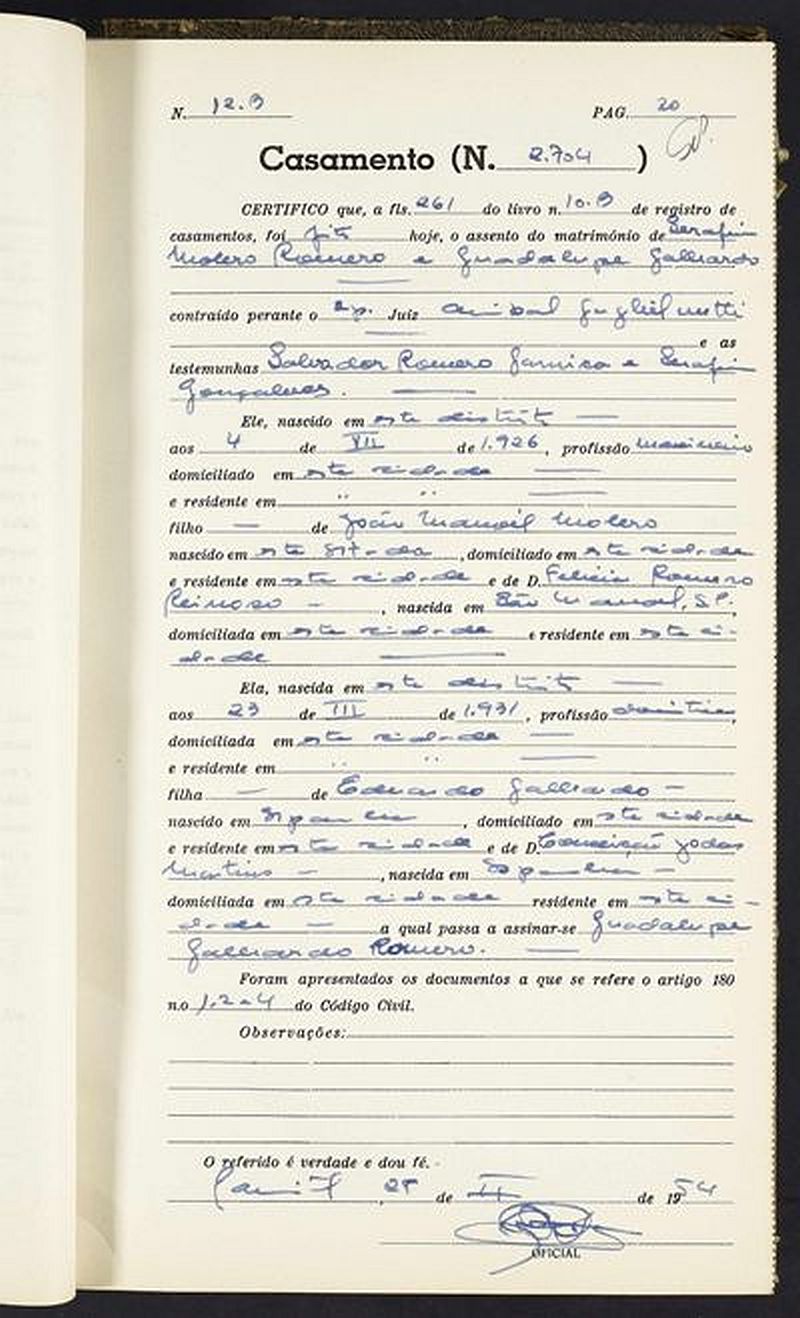 N. 12.B PAG. 20
Casamento (N. 2.704)
CERTIFICO que, a fls. 261 do livro n. 10.B de registro de
casamentos, foi feito hoje, o assento do matrimónio de Serafim
Molero Romero e Guadalupe Galhardo
contraído perante o Juiz Anibal Guglielmetti
e as
testemunhas Salvador Romero Garnica e Serafim
Gonçalves.
Ele, nascido em este distrito
aos 4 de VII de 1.926, profissão
domiciliado em esta cidade
e residente em " "
filho de João Manoel Molero
nascido em este , domiciliado em esta cidade
e residente em esta cidade e de D. Felicia Romero
Reinoso , nascida em São Manoel, S.P.
domiciliada em esta cidade e residente em esta ci-
dade
Ela, nascida em este distrito
aos 23 de III de 1.931, profissão
domiciliada em esta cidade
e residente em " "
filha de Eduardo Galhardo
nascido em Espanha, domiciliado em esta cidade
e residente em esta cidade e de D. Conceição Jodas
Martins , nascida em Espanha
domiciliada em esta cidade residente em esta ci-
dade a qual passa a assinar-se Guadalupe
Galhardo Romero.
Foram apresentados os documentos a que se refere o artigo 180
n.o 1.2 e 4 do Código Civil.
Observações:
O referido é verdade e dou fé. -
, de II de 1954
OFICIAL